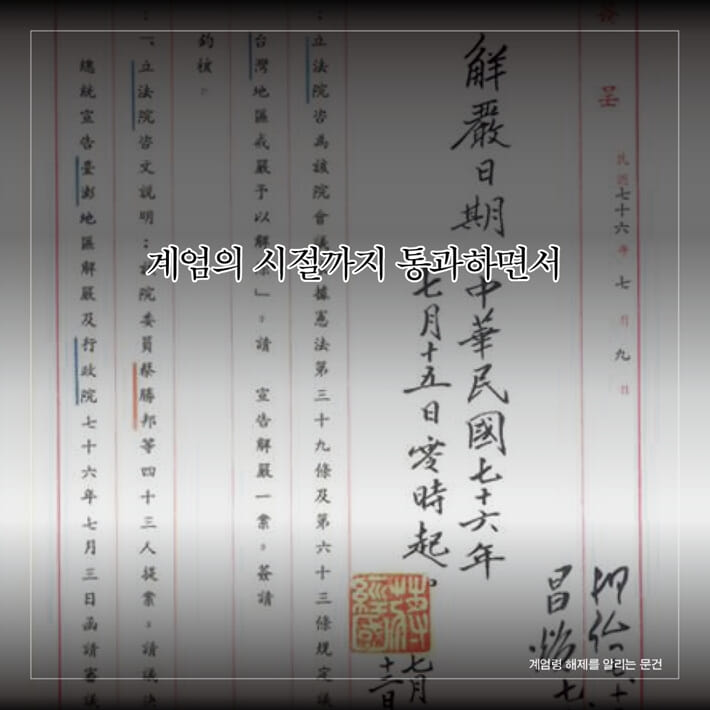 계엄의 시절까지 통과하면서
呈
民國七十六年七月九日
解嚴日期
中華民國七十六年
七月十五日零時起。
七月
：立法院咨為該院會議據憲法第三十九條及第六十三條規定議
台灣地區戒嚴予以解」，請 宣告解嚴一案，簽請
鈞核。
：一、立法院咨文說明：院委員蔡勝邦等四十三人提案：請議決
總統宣告臺澎地區解嚴及行政院七十六年七月三日函請審議
계엄령 해제를 알리는 문건